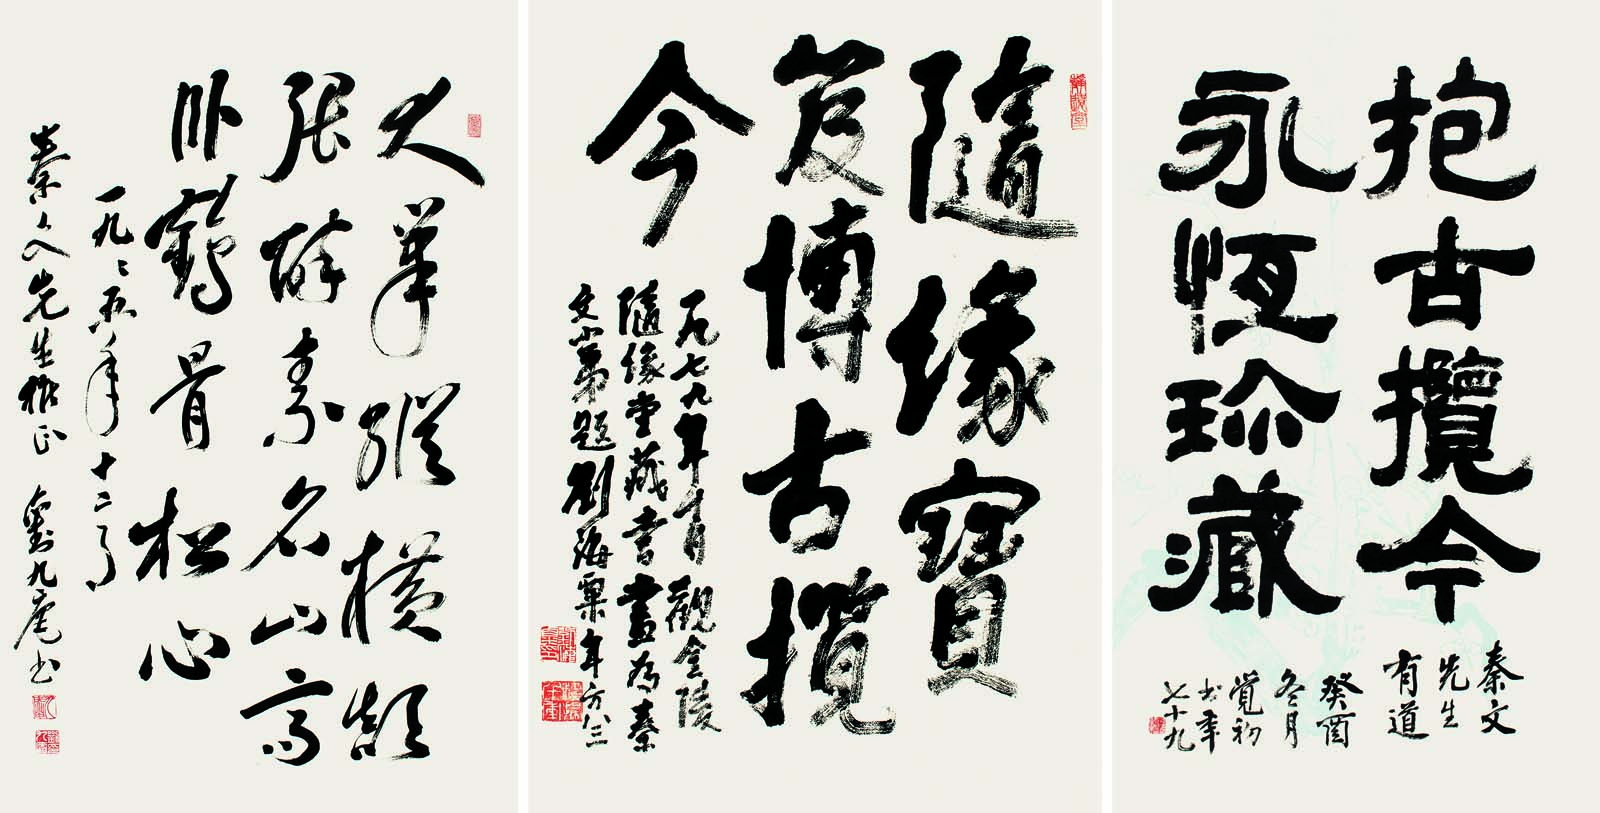 抱古攬今
永恆珍藏
秦文
先生
有道
癸酉
冬月
覺初
書年
七十九
隨緣寶
笈博古攬
今
一九七九年月觀金陵
隨緣堂藏書畫為秦
文小弟題劉海粟年方八三
大筆縱橫顛
張醉素名山高
臥鶴骨松心
一九〻五年十二月
秦文先生雅正 劉九庵書